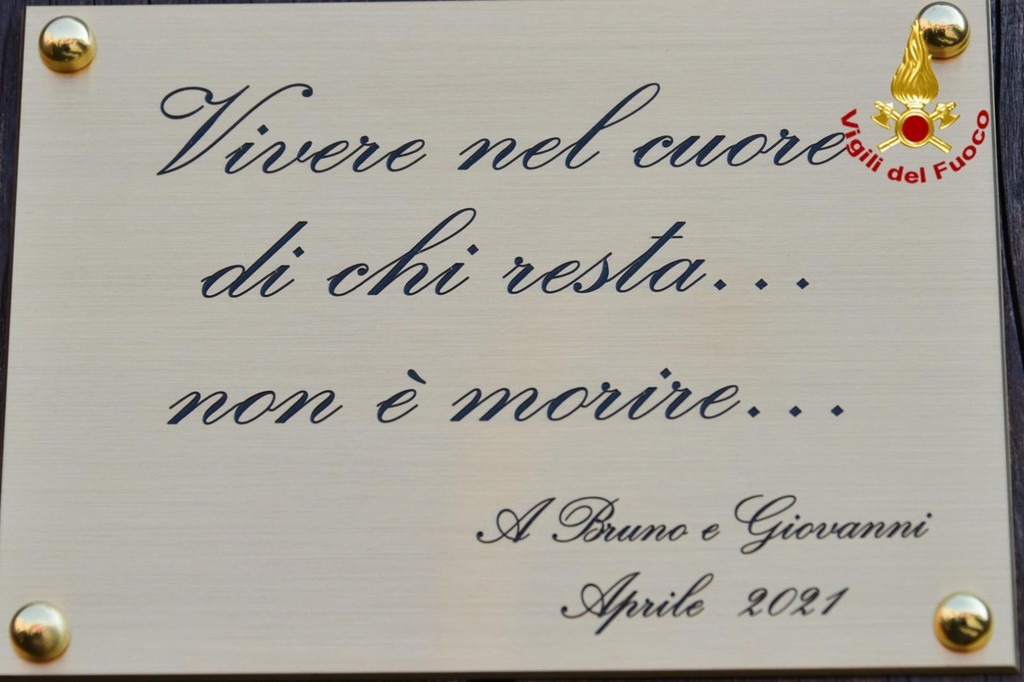 Vivere nel cuore
di chi resta...
non è morire...
A Bruno e Giovanni
Aprile 2021
Vigili del Fuoco